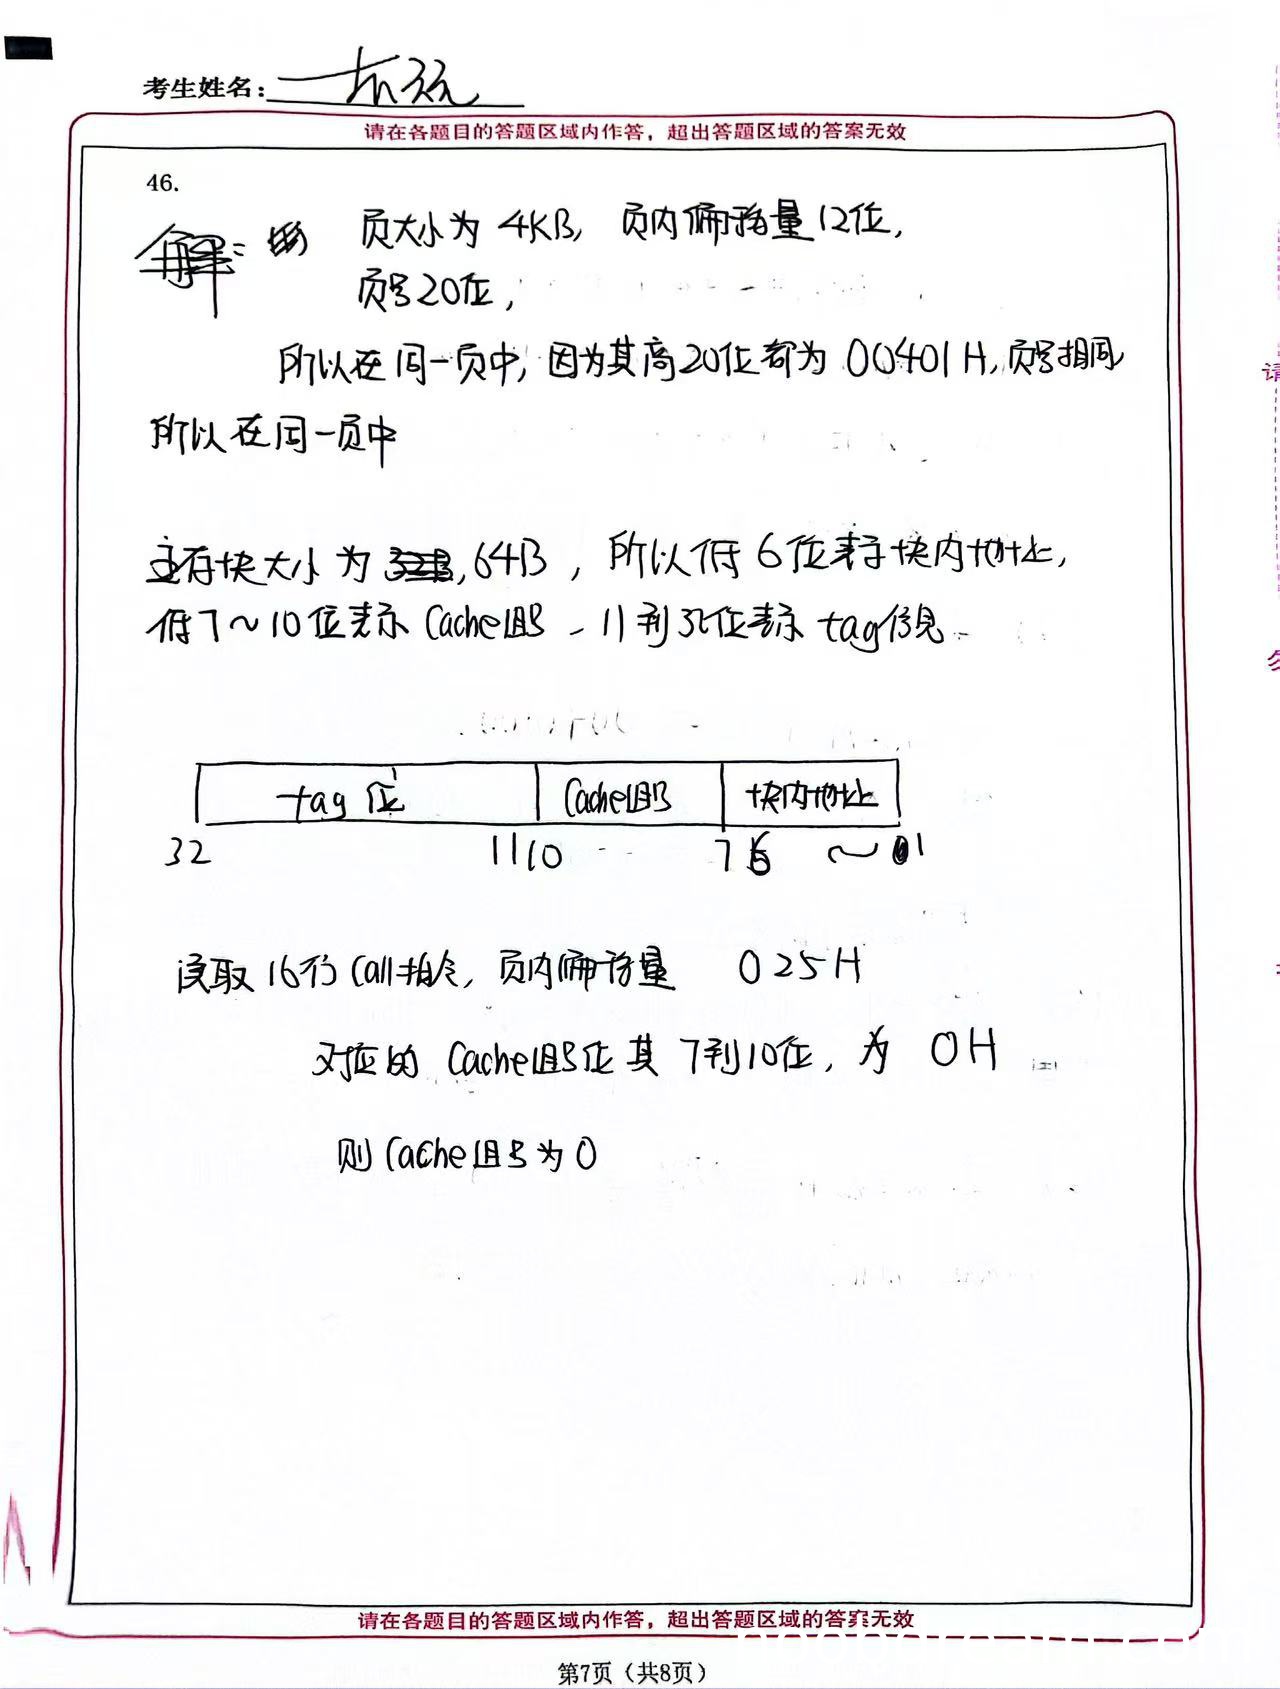 考生姓名：
请在各题目的答题区域内作答，超出答题区域的答案无效
46.
解： 页大小为 4KB, 页内偏移量12位,
页号20位,
所以在同一页中, 因为其高20位都为 00401H, 页号相同
所以在同一页中
主存块大小为 64B, 所以低6位表示块内地址,
低7~10位表示 Cache组号 - 11到32位表示 tag信息.
tag位 Cache组号 块内地址
32 11 10 7 6 ~ 1
读取16行Call指令, 页内偏移量 025H
对应的 Cache组号位其 7到10位, 为 0H
则Cache组号为0
请在各题目的答题区域内作答，超出答题区域的答案无效
第7页（共8页）